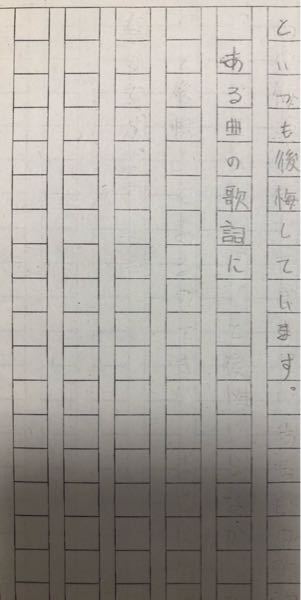 といつも後悔しています。
ある曲の歌詞に